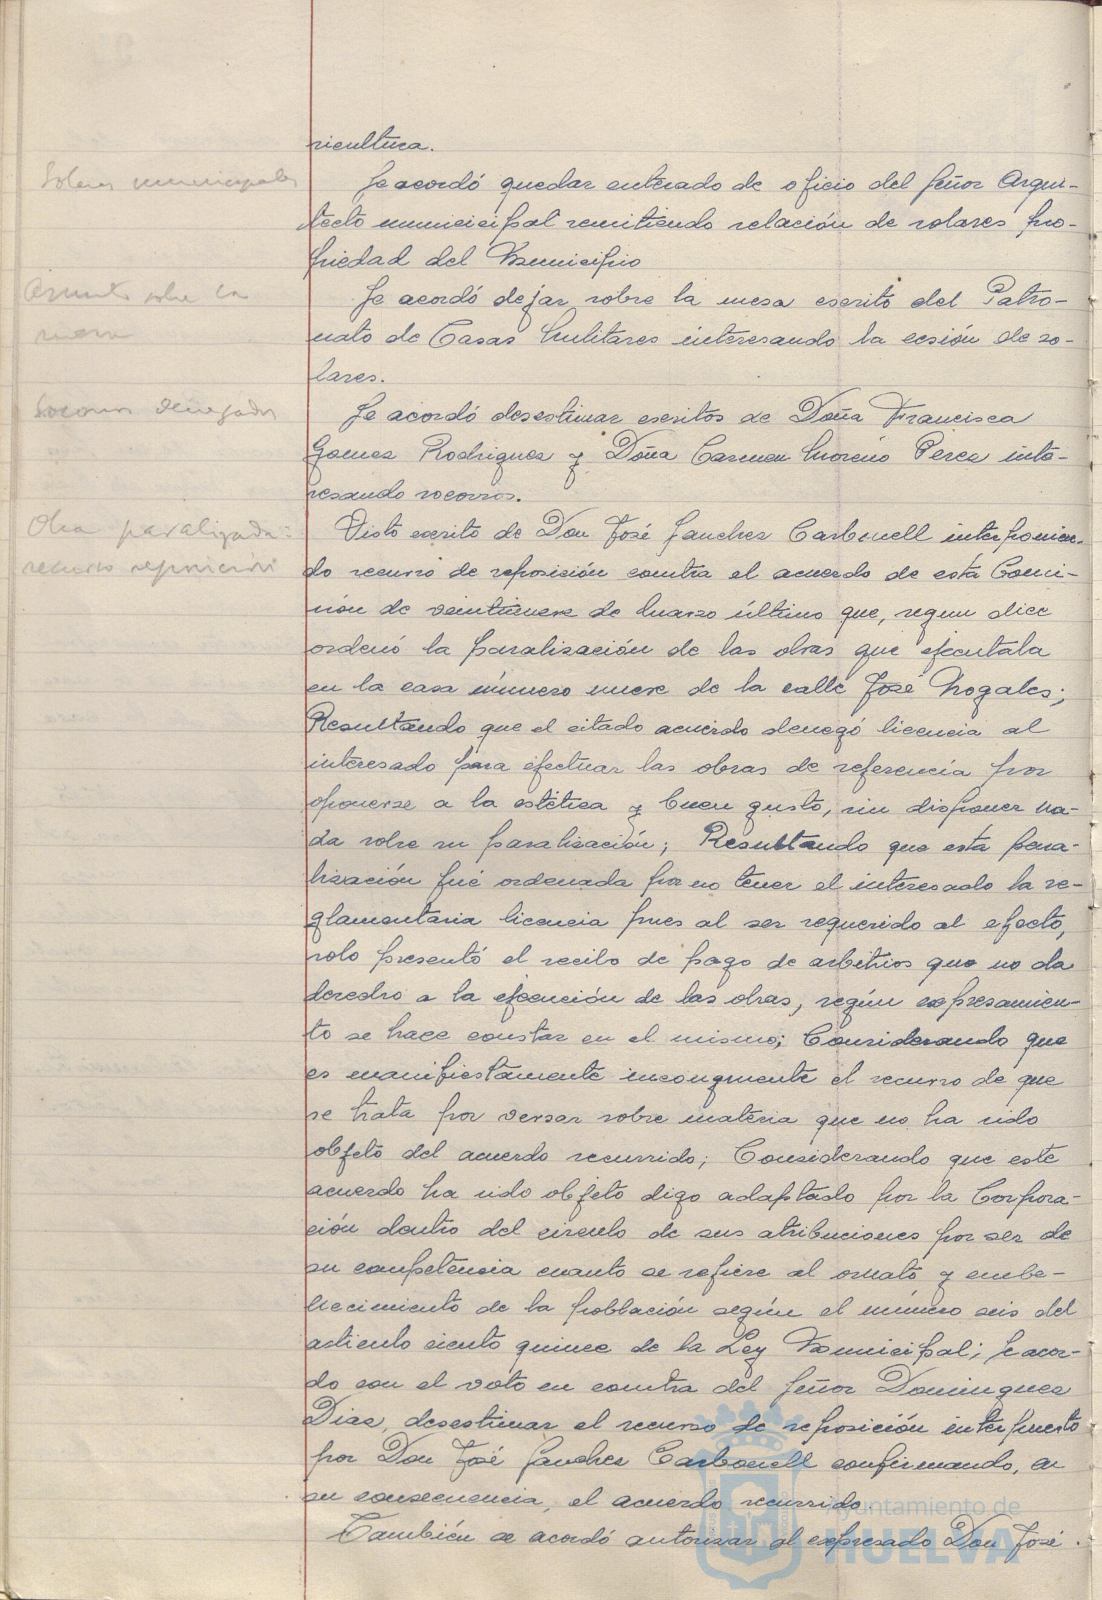 ricultura.
Solares municipales
Se acordó quedar enterado de oficio del Señor Arqui-
tecto municicipal remitiendo relación de solares pro-
piedad del Municipio
Asunto sobre la
mesa
Se acordó dejar sobre la mesa escrito del Patro-
nato de Casas Militares interesando la cesión de so-
lares.
Socorros denegados
Se acordó desestimar escritos de Doña Francisca
Gomez Rodriguez y Doña Carmen Moreno Perez inte-
resando socorros.
Obra paralizada:
recurso reposición
Visto escrito de Don José Sanchez Carbonell interponien-
do recurso de reposición contra el acuerdo de esta Comi-
sión de veintinueve de Marzo último que, segun dice
ordenó la paralización de las obras que ejecutaba
en la casa número nueve de la calle José Nogales;
Resultando que el citado acuerdo denegó licencia al
interesado para efectuar las obras de referencia por
oponerse a la estética y buen gusto, sin disponer na-
da sobre su paralización; Resultando que esta para-
lización fué ordenada por no tener el interesado la re-
glamentaria licencia pues al ser requerido al efecto,
solo presentó el recibo de pago de arbitrios que no da
derecho a la ejecución de las obras, según expresamen-
to se hace constar en el mismo; Considerando que
es manifiestamente incongruente el recurso de que
se trata por versar sobre materia que no ha sido
objeto del acuerdo recurrido; Considerando que este
acuerdo ha sido objeto digo adaptado por la Corpora-
ción dentro del circulo de sus atribuciones por ser de
su competencia cuanto se refiere al ornato y embe-
llecimiento de la población según el número seis del
articulo ciento quince de la Ley Municipal; Se acor-
do con el voto en contra del Señor Dominguez
Diaz, desestimar el recurso de reposición interpuesto
por Don José Sanchez Carbonell confirmando, en
su consecuencia, el acuerdo recurrido.
También se acordó autorizar al expresado Don José
Ayuntamiento de
HUELVA